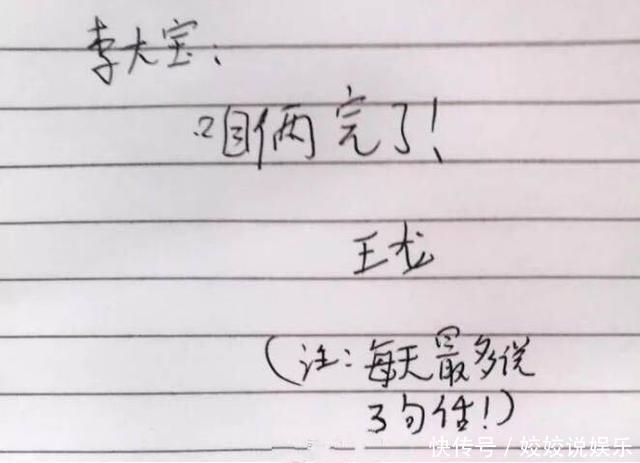 李大宝：
咱俩完了！
王龙
（注：每天最多说
3句话！）
快传号／姣姣说娱乐